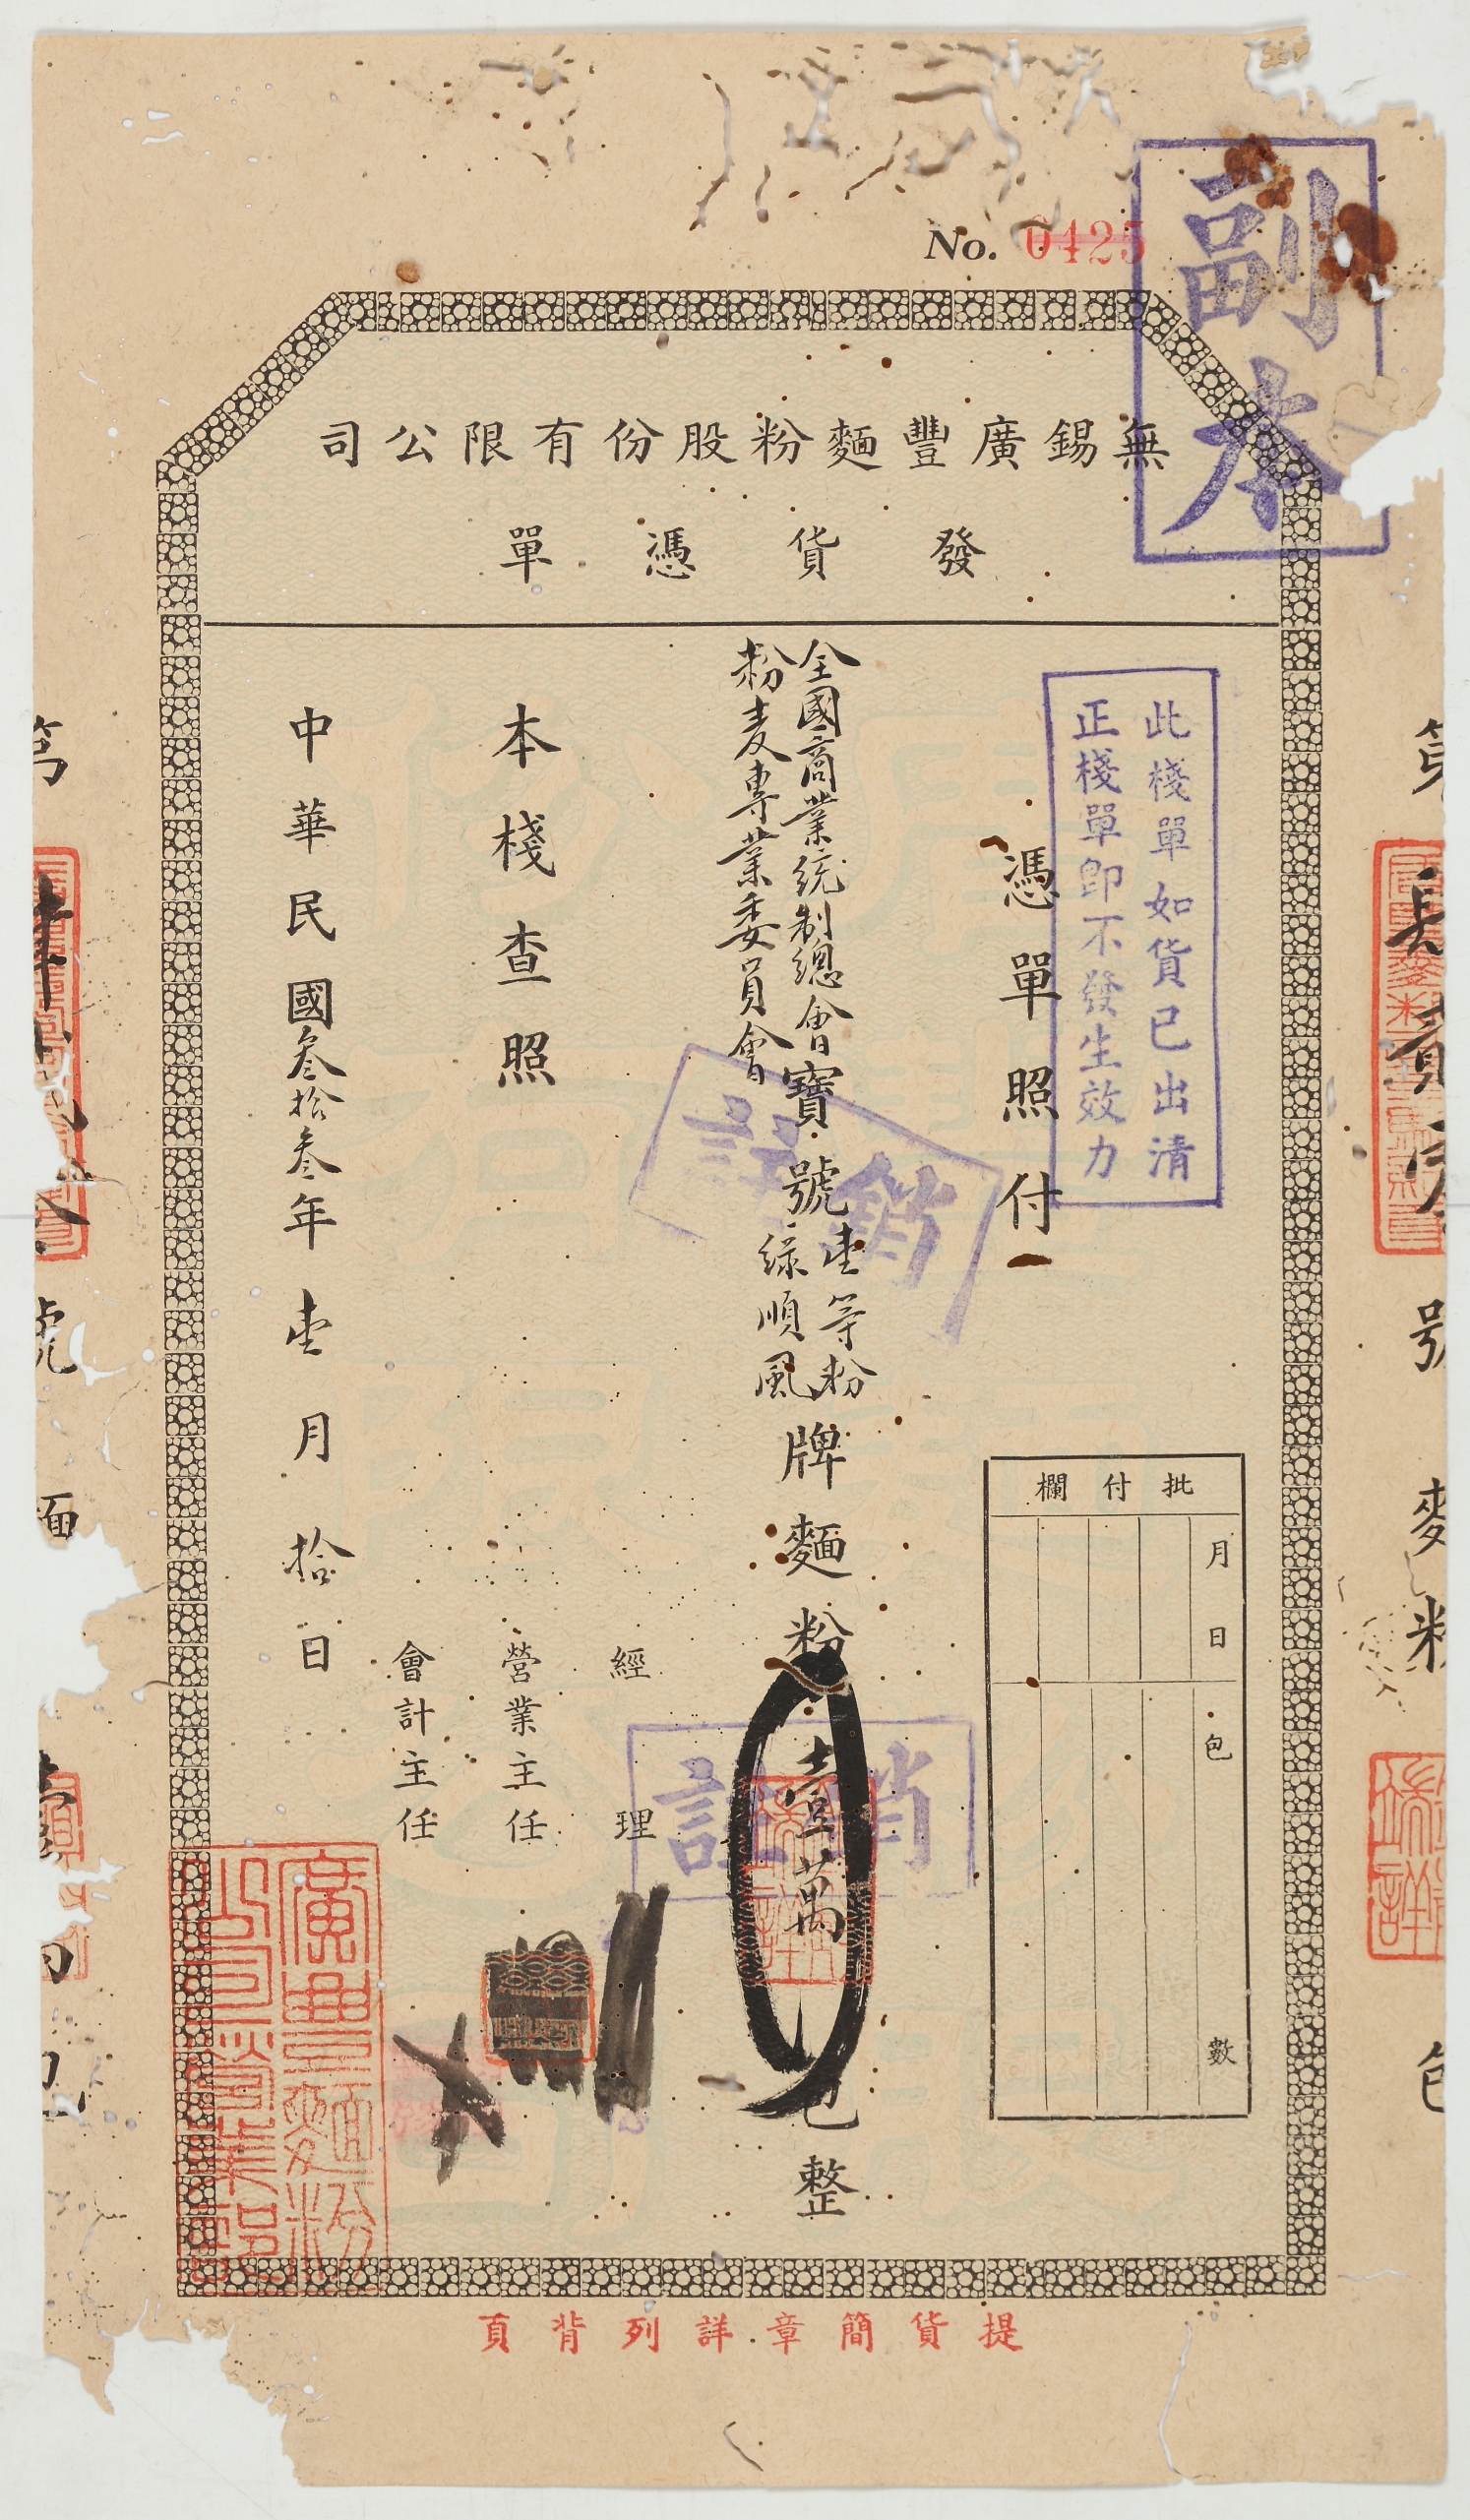 副本
No. 0425
無錫廣豐麵粉股份有限公司
發貨憑單
此棧單如貨已出清
正棧單即不發生效力
憑單照付
批付欄
月日
包數
全國商業統制總會
粉麦專業委員會
寶號
壹等粉
綠順風
牌麵粉壹萬包整
註銷
註銷
本棧查照
經理
營業主任
會計主任
中華民國叁拾叁年壹月拾日
廣豐麵粉
公司營業部
提貨簡章詳列背頁
號麥粉
包
號